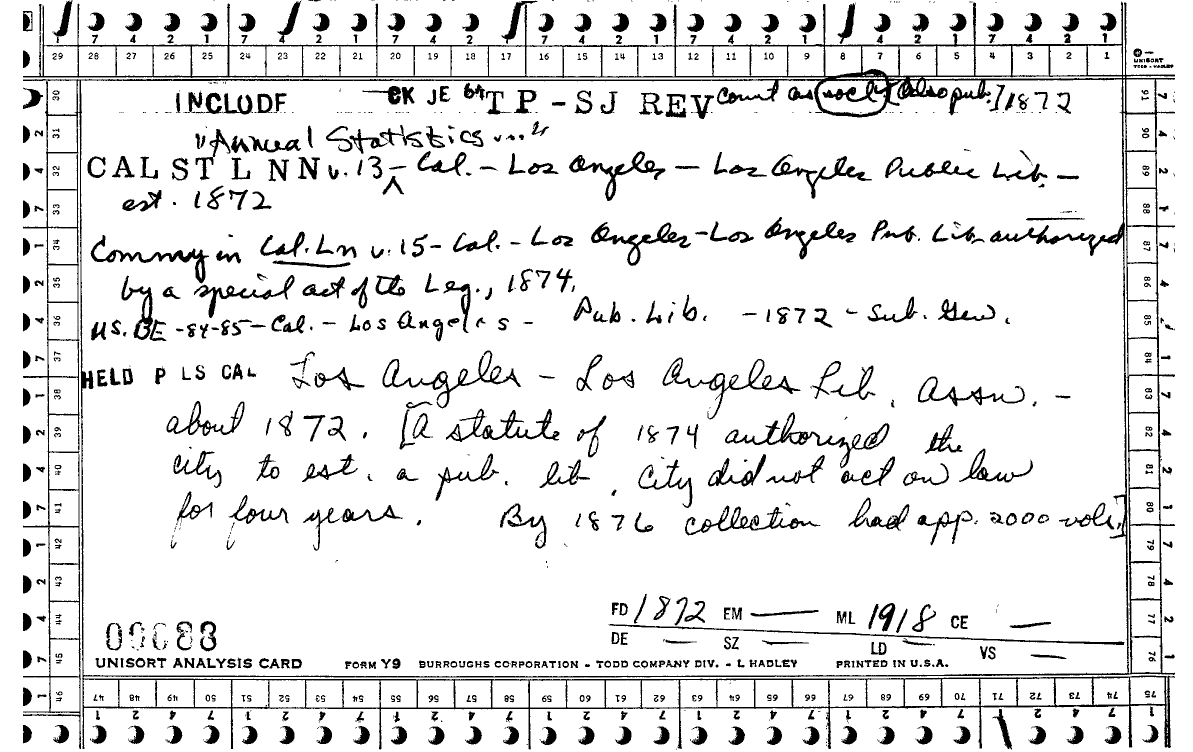 1 7 4 2 1 7 4 2 1 7 4 2 1 7 4 2 1 7 4 2 1 7 4 2 1 7 4 2 1
29 28 27 26 25 24 23 22 21 20 19 18 17 16 15 14 13 12 11 10 9 8 7 6 5 4 3 2 1
UNISORT
TODD - HADLEY
INCLUDE CK JE 64 TP - SJ REV Count as socly [also pub.] 1872
"Annual Statistics..."
CAL ST L NN v. 13 - Cal. - Los Angeles - Los Angeles Public Lib. -
est. 1872
Commy in Cal. Ln v. 15 - Cal. - Los Angeles - Los Angeles Pub. Lib. authorized
by a special act of the Leg., 1874.
U.S. BE - 84-85 - Cal. - Los Angeles - Pub. Lib. - 1872 - Sub. Gen.
HELD P LS CAL Los Angeles - Los Angeles Lib. Assn. -
about 1872. [A statute of 1874 authorized the
city to est. a pub. lib. City did not act on law
for four years. By 1876 collection had app. 2000 vols.]
FD 1872 EM — ML 1918 CE —
DE — SZ — LD — VS —
00088
UNISORT ANALYSIS CARD FORM Y9 BURROUGHS CORPORATION - TODD COMPANY DIV. - L HADLEY PRINTED IN U.S.A.
46 47 48 49 50 51 52 53 54 55 56 57 58 59 60 61 62 63 64 65 66 67 68 69 70 71 72 73 74 75